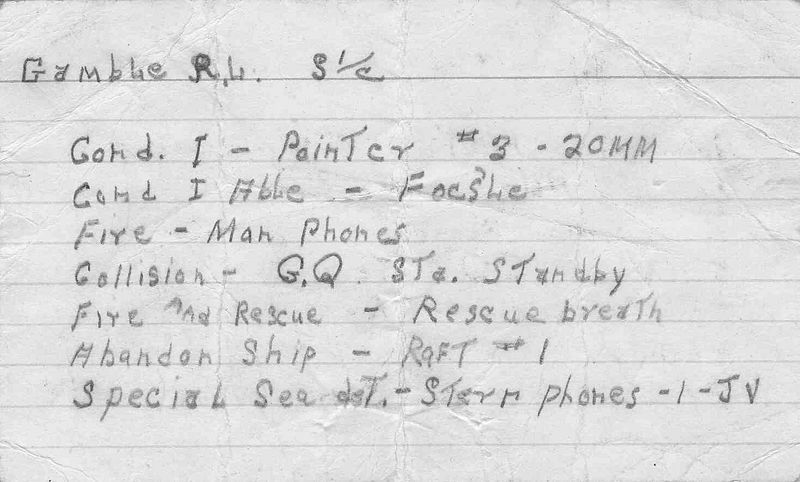 Gamble R.L. S 1/c
Cond. I - Pointer #3 - 20MM
Cond I Able - Foc'sle
Fire - Man Phones
Collision - G.Q. Sta. Standby
Fire And Rescue - Rescue breath
Abandon Ship - Raft #1
Special Sea det. - Stern phones - 1 - JV